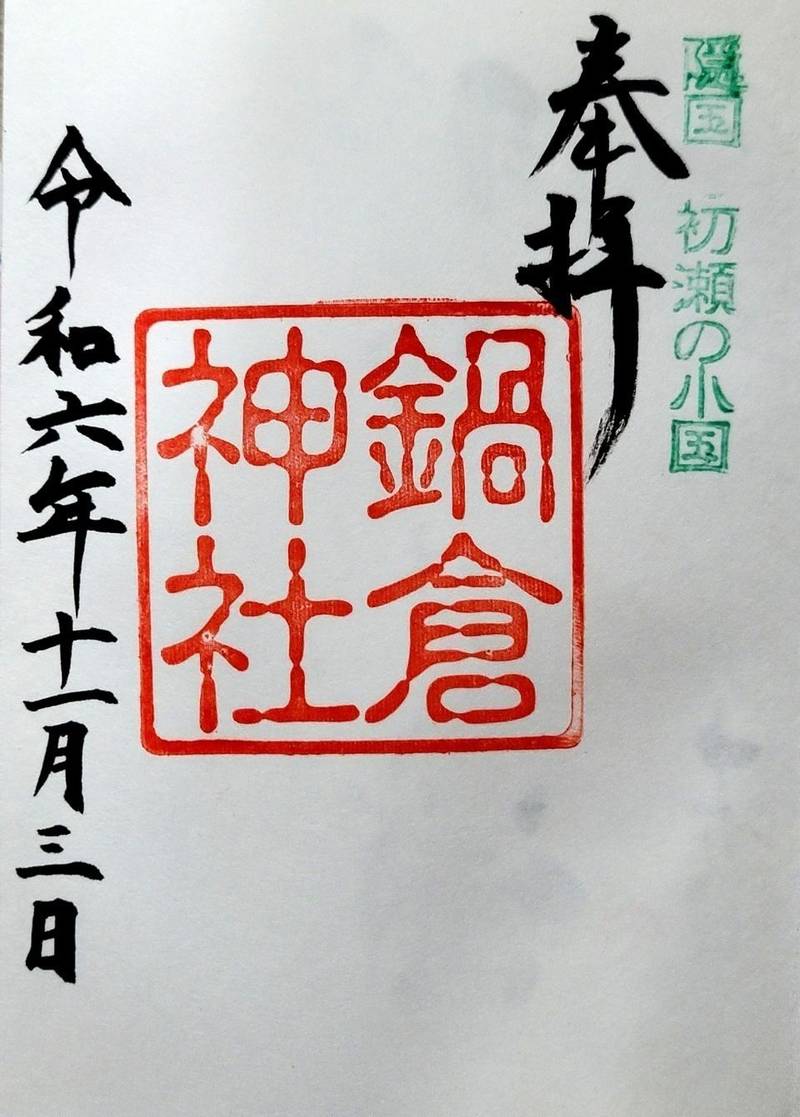 隠国 初瀬の小国
奉拝
鍋倉
神社
令和六年十一月三日